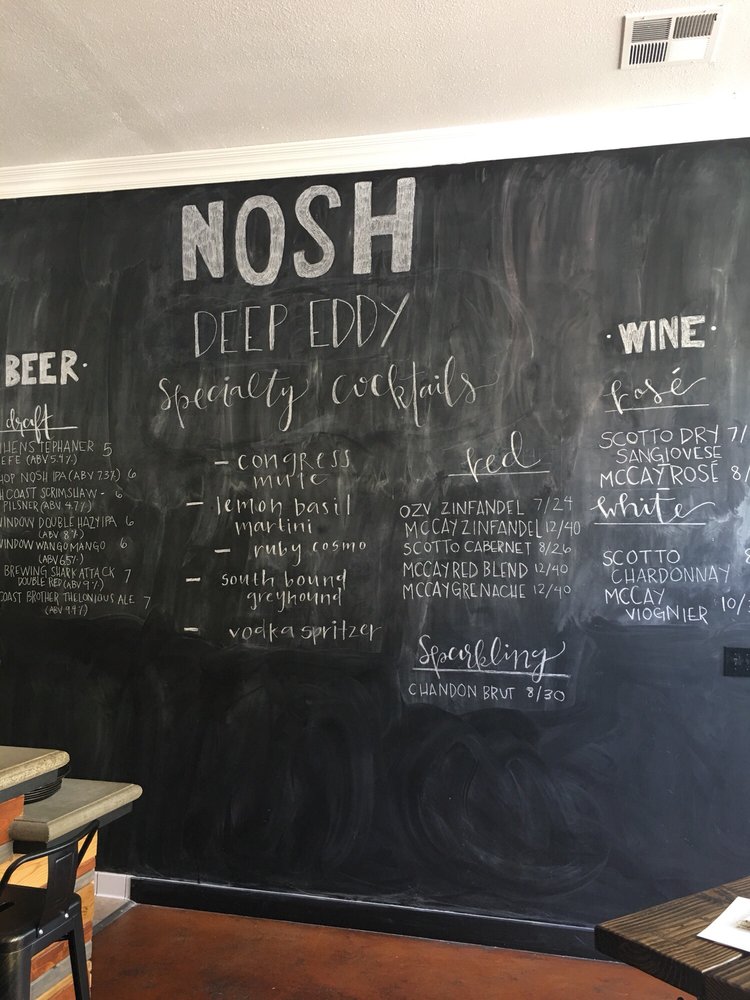 NOSH
DEEP EDDY
Specialty Cocktails
- congress
mule
- lemon basil
martini
- ruby cosmo
- south bound
greyhound
- vodka spritzer
BEER·
draft
5
(ABV 5.4%)
NOSH IPA (ABV 7.3%) 6
COAST SCRIMSHAW - 6
PILSNER (ABV 4.7%)
WINDOW DOUBLE HAZY IPA 6
(ABV 8%)
WINDOW WANGO MANGO 6
(ABV 6.5%)
BREWING SHARK ATTACK 7
DOUBLE RED (ABV 9%)
COAST BROTHER THELONIOUS ALE 7
(ABV 9.4%)
red
OZV ZINFANDEL 7/24
MCCAY ZINFANDEL 12/40
SCOTTO CABERNET 8/26
MCCAY RED BLEND 12/40
MCCAY GRENACHE 12/40
Sparkling
CHANDON BRUT 8/30
·WINE·
rosé
SCOTTO DRY 7/
SANGIOVESE
MCCAY ROSÉ 8/
white
SCOTTO
CHARDONNAY
MCCAY
VIOGNIER 10/